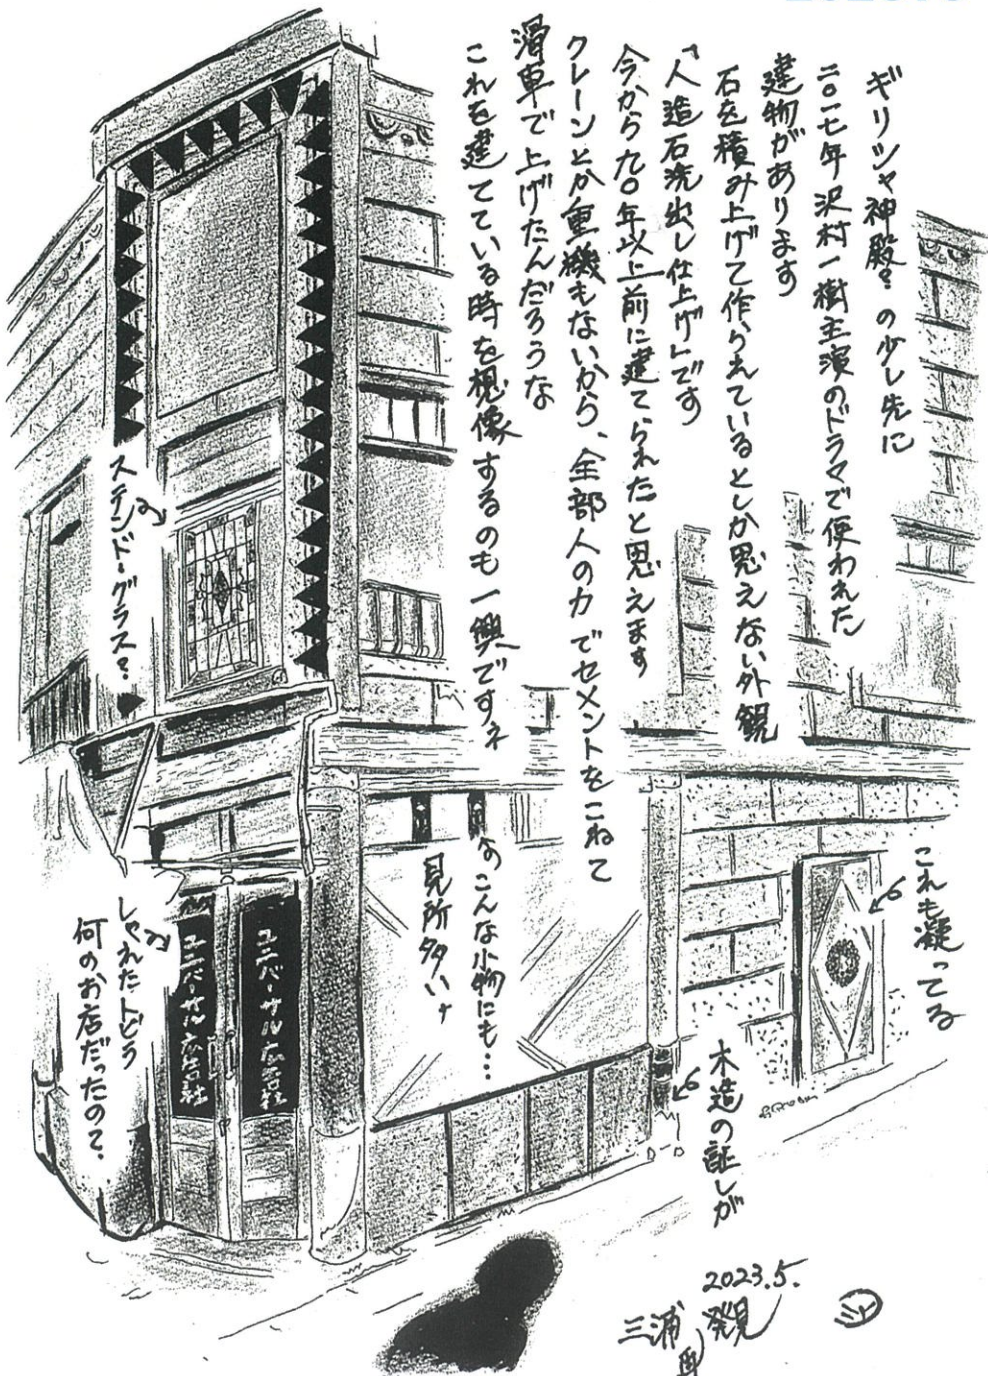 ギリシャ神殿?の少し先に
二〇一七年沢村一樹主演のドラマで使われた
建物があります
石を積み上げて作られているとしか思えない外観
「人造石洗出し仕上げ」です
今から九〇年以上前に建てられたと思えます
クレーンとか重機もないから、全部人の力でセメントをこねて
滑車で上げたんだろうな
これを建てている時を想像するのも一興ですネ
ステンド・グラス?
これも凝ってる
こんな小物にも…
見所多い
しゃれたトビラ
何のお店だったの?
ユニバーサル広告社
ユニバーサル広告社
木造の証しが
2023.5.
発見
三浦画